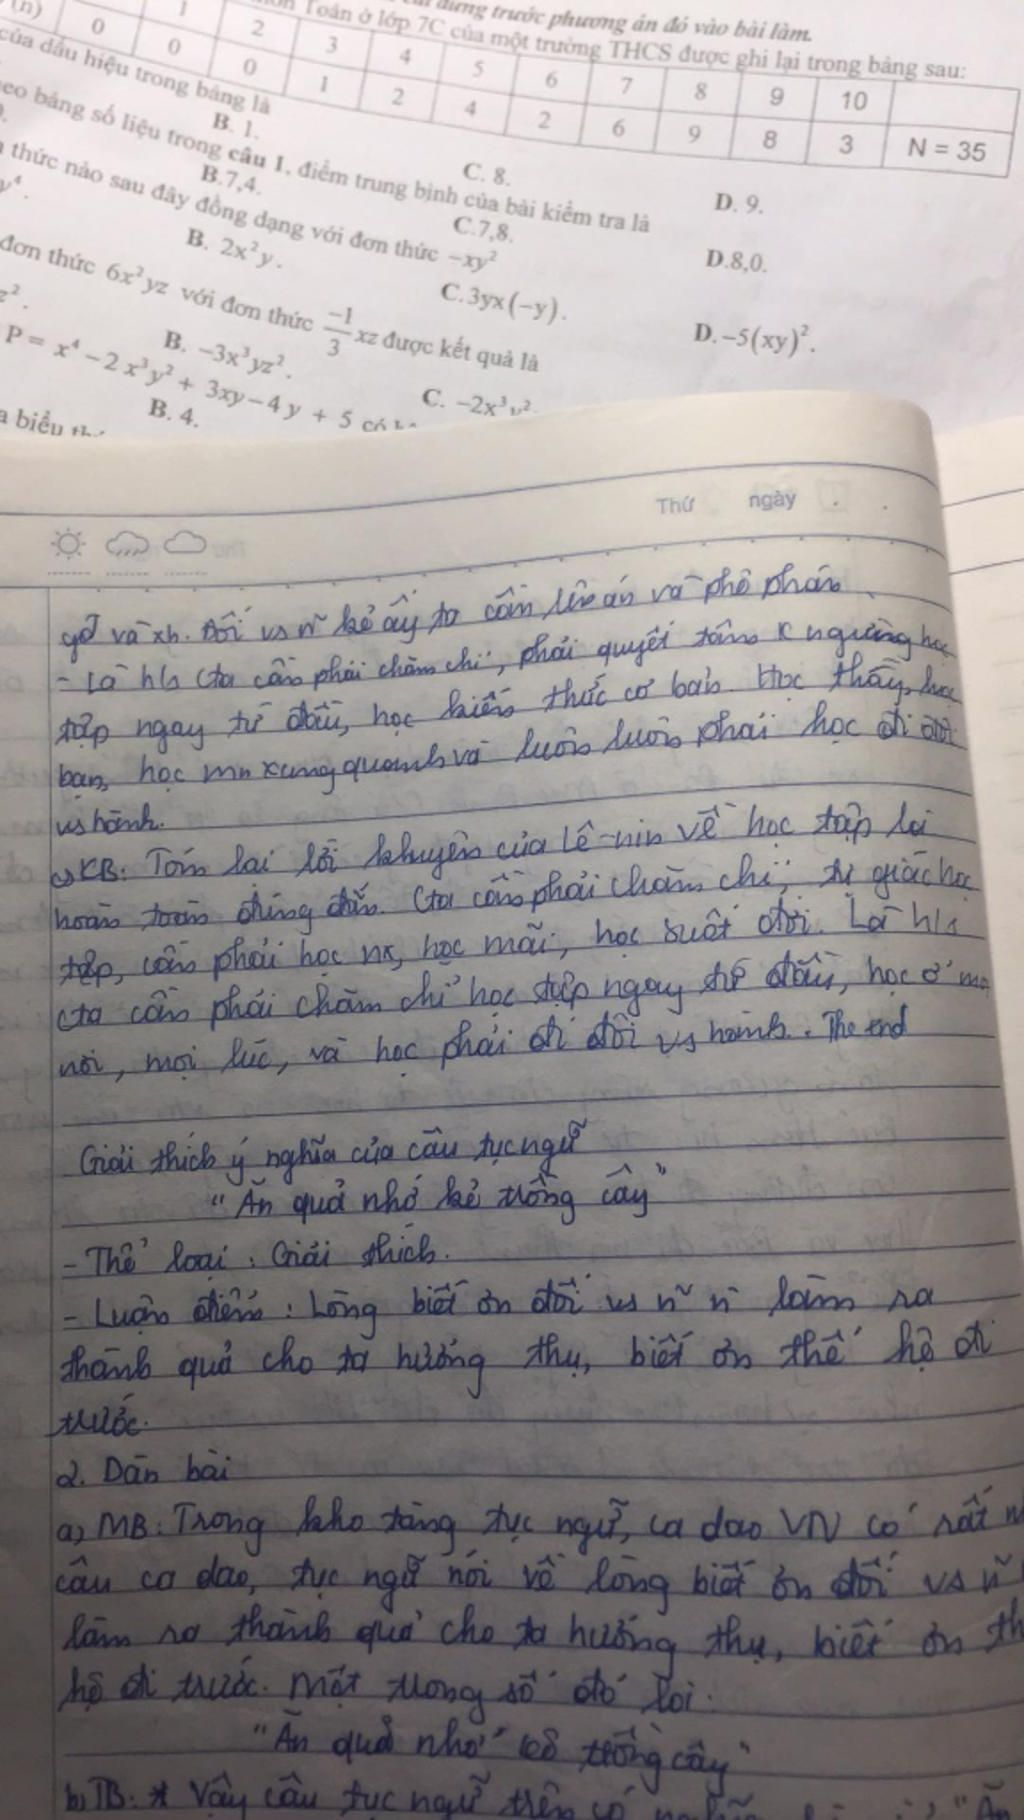 đứng trước phương án đó vào bài làm.
Toán ở lớp 7C của một trường THCS được ghi lại trong bảng sau:
(n) 0 1 2 3 4 5 6 7 8 9 10
0 0 1 2 4 2 6 9 8 3 N = 35
của dấu hiệu trong bảng là
B. 1. C. 8. D. 9.
bảng số liệu trong câu 1, điểm trung bình của bài kiểm tra là
B.7,4. C.7,8. D.8,0.
thức nào sau đây đồng dạng với đơn thức −xy²
B. 2x²y. C.3yx(−y). D.−5(xy)².
đơn thức 6x²yz với đơn thức −1/3 xz được kết quả là
z². B. −3x³yz². C. −2x³
P = x⁴ − 2x³y² + 3xy − 4y + 5 có
B. 4.
biểu
Thứ ngày
gđ và xh. Đối vs n~ kẻ ấy ta cần lên án và phê phán
- Là hls cta cần phải chăm chỉ, phải quyết tâm k ngừng học
tập ngay từ đầu, học kiến thức cơ bản. Học thầy, học
bạn, học mn xung quanh và luôn luôn phải học đi đôi
vs hành.
c) KB: Tóm lại lời khuyên của Lê-nin về học tập là
hoàn toàn đúng đắn. Cta cần phải chăm chỉ, tự giác học
tập, cần phải học nx, học mãi, học suốt đời. Là hls
cta cần phải chăm chỉ học tập ngay từ đầu, học ở mọ
nơi, mọi lúc, và học phải đi đôi vs hành. The end
Giải thích ý nghĩa của câu tục ngữ
"Ăn quả nhớ kẻ trồng cây"
- Thể loại: Giải thích.
- Luận điểm: Lòng biết ơn đối vs n~ n` làm ra
thành quả cho ta hưởng thụ, biết ơn thế hệ đi
trước.
2. Dàn bài
a) MB: Trong kho tàng tục ngữ, ca dao VN có rất n
câu ca dao, tục ngữ nói về lòng biết ơn đối vs n~
làm ra thành quả cho ta hưởng thụ, biết ơn th
hệ đi trước. Một trong số đó là:
"Ăn quả nhớ kẻ trồng cây"
b) TB: * Vậy câu tục ngữ trên có nghĩa